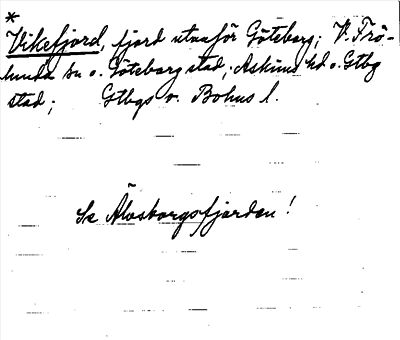 *
Vikefjord, fjord utanför Göteborg; V. Frö-
lunda sn o. Göteborg stad, Askims hd o. Gtbg
stad; Gtbgs o. Bohus l.
Se Älvsborgsfjorden!